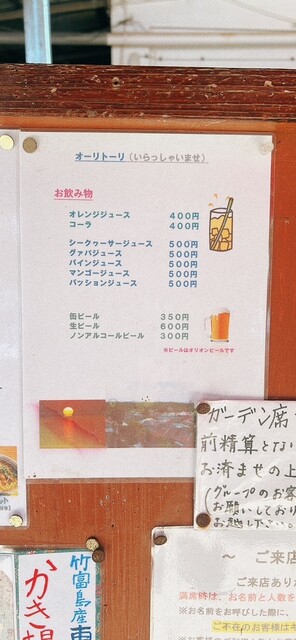 オーリトーリ(いらっしゃいませ)
お飲み物
オレンジジュース 400円
コーラ 400円
シークヮーサージュース 500円
グァバジュース 500円
パインジュース 500円
マンゴージュース 500円
パッションジュース 500円
缶ビール 350円
生ビール 600円
ノンアルコールビール 300円
※ビールはオリオンビールです
ガーデン席
前精算とな
お済ませの上
(グループのお客
お願いしており
お越し下さい。
竹富島産
かき揚
~ ご来店
ご来店あり
満席時は、お名前と人数を
※お名前をお呼びした際に、
ご不在のお客様は